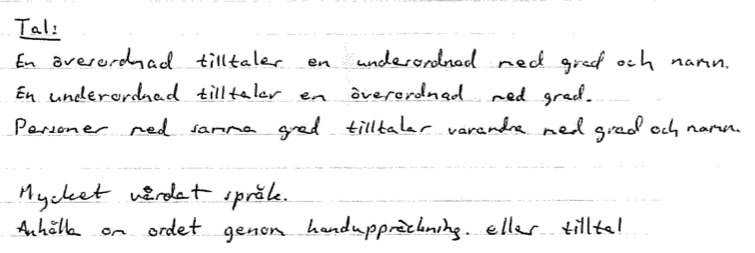 Tal:
En överordnad tilltalar en underordnad med grad och namn.
En underordnad tilltalar en överordnad med grad.
Personer med samma grad tilltalar varandra med grad och namn.
Mycket vårdat språk.
Anhålla om ordet genom handuppräckning. eller tilltal